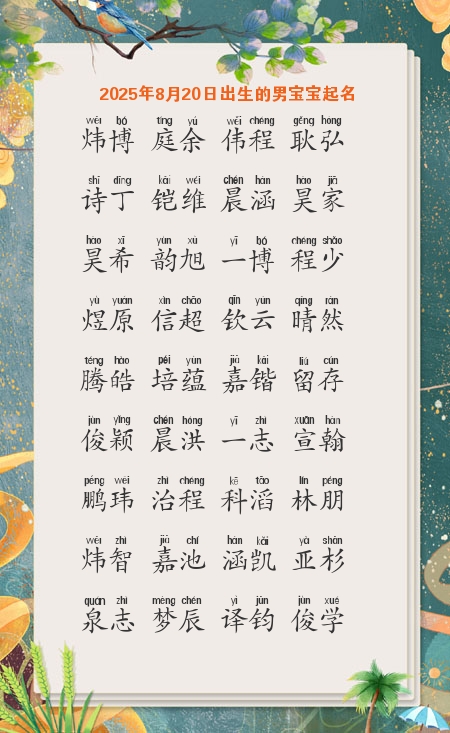 2025年8月20日出生的男宝宝起名
wěi bó tíng yú wěi chéng gěng hóng
炜博 庭余 伟程 耿弘
shī dīng kǎi wéi chén hán hào jiā
诗丁 铠维 晨涵 昊家
hào xī yùn xù yī bó chéng shào
昊希 韵旭 一博 程少
yù yuán xìn chāo qīn yún qíng rán
煜原 信超 钦云 晴然
téng hào péi yùn jiā kǎi liú cún
腾皓 培蕴 嘉锴 留存
jùn yǐng chén hóng yī zhì xuān hàn
俊颖 晨洪 一志 宣翰
péng wěi zhì chéng kē tāo lín péng
鹏玮 治程 科滔 林朋
wěi zhì jiā chí hán kǎi yà shān
炜智 嘉池 涵凯 亚杉
quán zhì mèng chén yì jūn jùn xué
泉志 梦辰 译钧 俊学